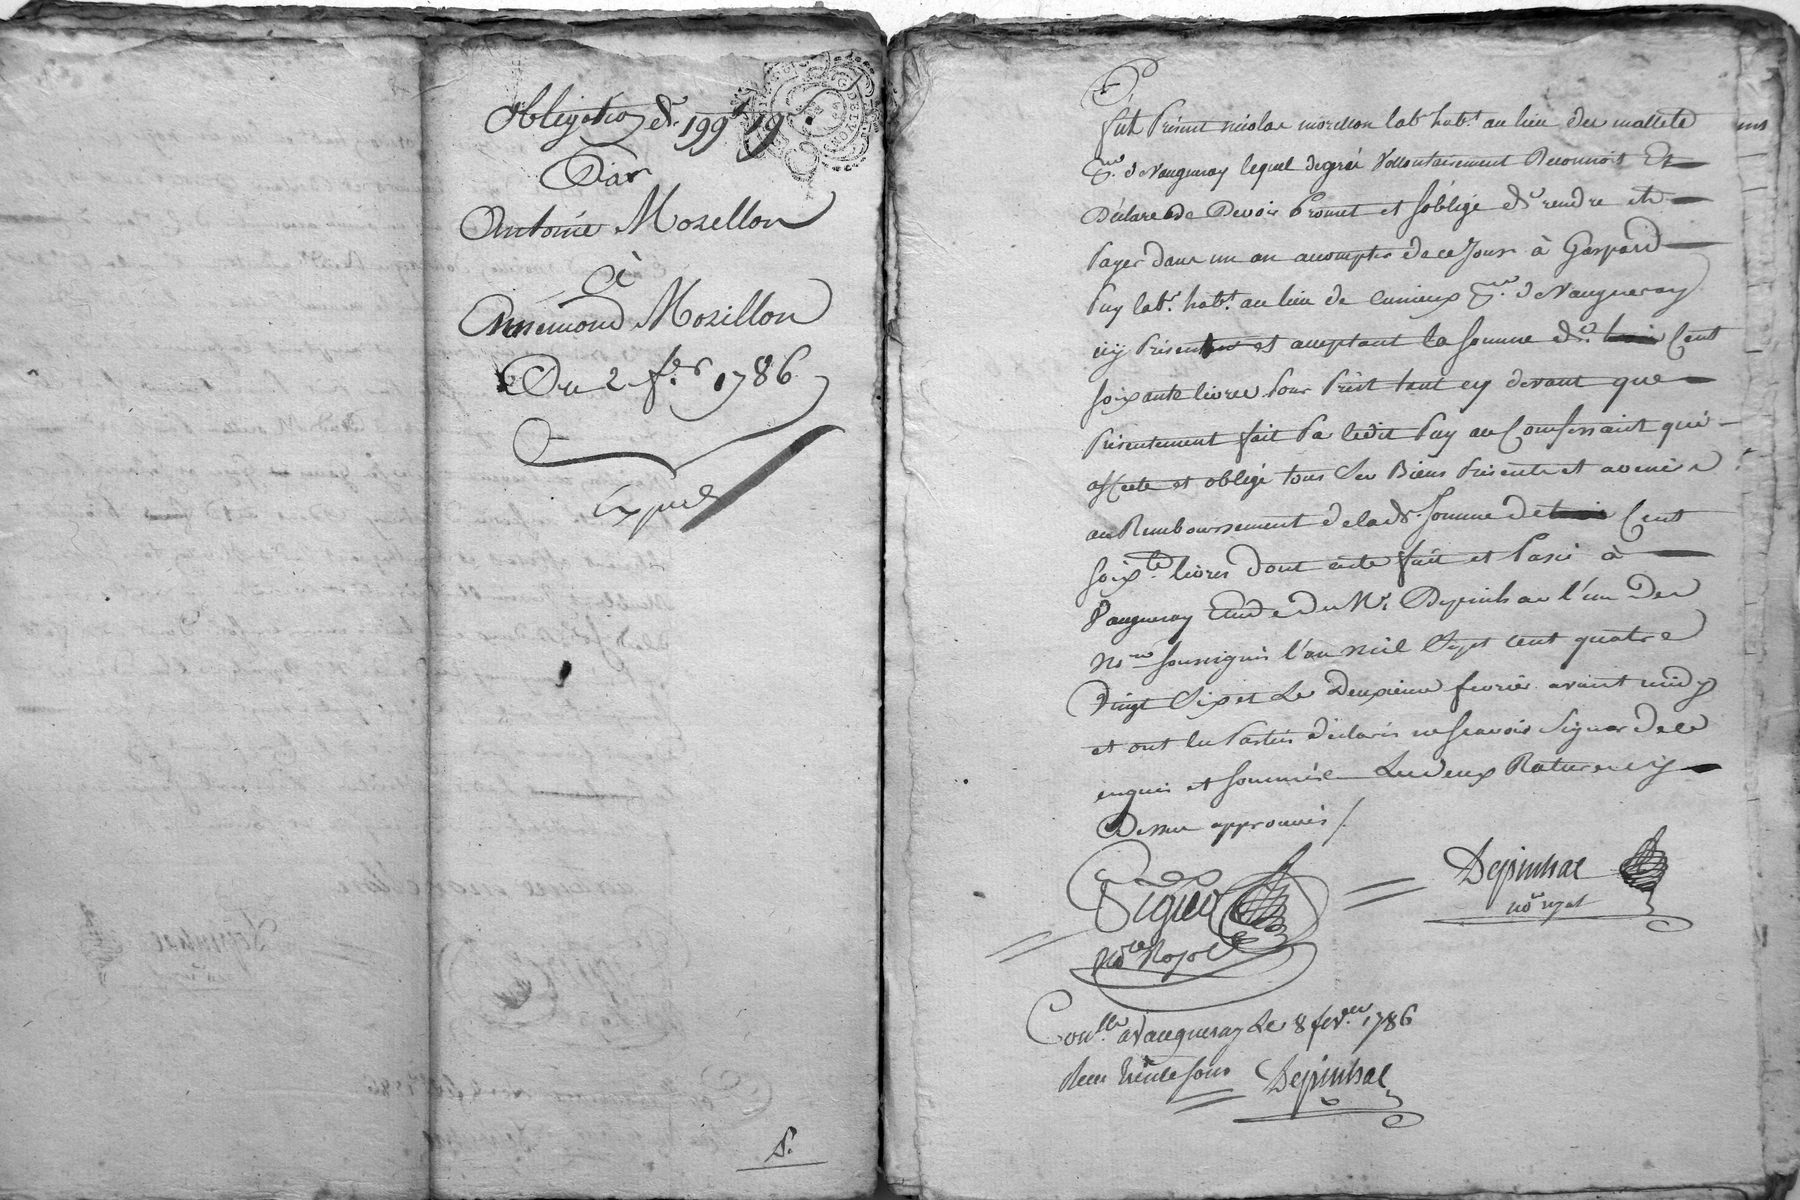 Obligation de 199ᵗᵗ 19ˢ
Par
Antoine Morellon
à
Annemond Morillon
Du 2 fe.ʳ 1786
Exped
S.
fut Présent nicolas morellon labʳ habᵗ au lieu des mallets
de Vaugneray lequel de gré Vollontairement Reconnoit Et
Déclare de Devoir Promet et s'oblige de rendre et
Payer dans un an a compter de ce Jour à Gaspard
Puy labʳ habᵗ au lieu de de Vaugneray
icy Présent et acceptant la somme de trois Cent
soixante livres Pour Prêt tant cy devant que
Présentement fait Pa ledit Puy au Confessant qui
affecte et oblige tous Ses Biens Présents et avenir
au Remboursement de lad. somme de trois Cent
soix.ᵗᵉ livres dont acte fait et Passé à
Vaugneray Etude du Mᵉ Depinhac l'un Des
noʳᵉˢ soussignés l'an mil Sept cent quatre
Vingt Six et Le Deuxieme fevrier avant midy
et ont les Parties déclaré ne scavoir Signer de ce
enquis et sommés Les deux Ratures cy
Dessus approuvés /.
Depinhac
noʳᵉ royal
noʳᵉ Royal
Con.ˡˡᵉ a Vaugneray Le 8 fev.ᵉʳ 1786
Recu trente sous Depinhac